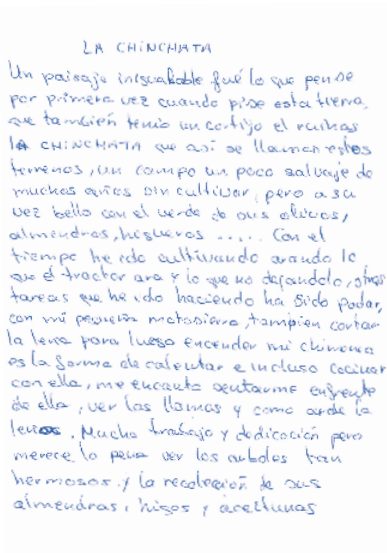 LA CHINCHATA
Un paisaje inigualable fué lo que pense
por primera vez cuando pise esta tierra,
que también tenia un cortijo el ruinas
LA CHINCHATA que asi se llaman estos
terrenos, un campo un poco salvaje de
muchos años sin cultivar, pero a su
vez bello con el verde de sus olivos,
almendros, higueros ..... Con el
tiempo he ido cultivando arando lo
que el tractor ara y lo que no dejandolo, otras
tareas que he ido haciendo ha sido podar,
con mi pequeña motosierra, tampien cortar
la leña para luego encender mi chimenea
es la forma de calentar e incluso cocinar
con ella, me encanta sentarme enfrente
de ella, ver las llamas y como arde la
leña. Mucho trabajo y dedicación pero
merece la pena ver los arboles tan
hermosos y la recolección de sus
almendras, higos y aceitunas